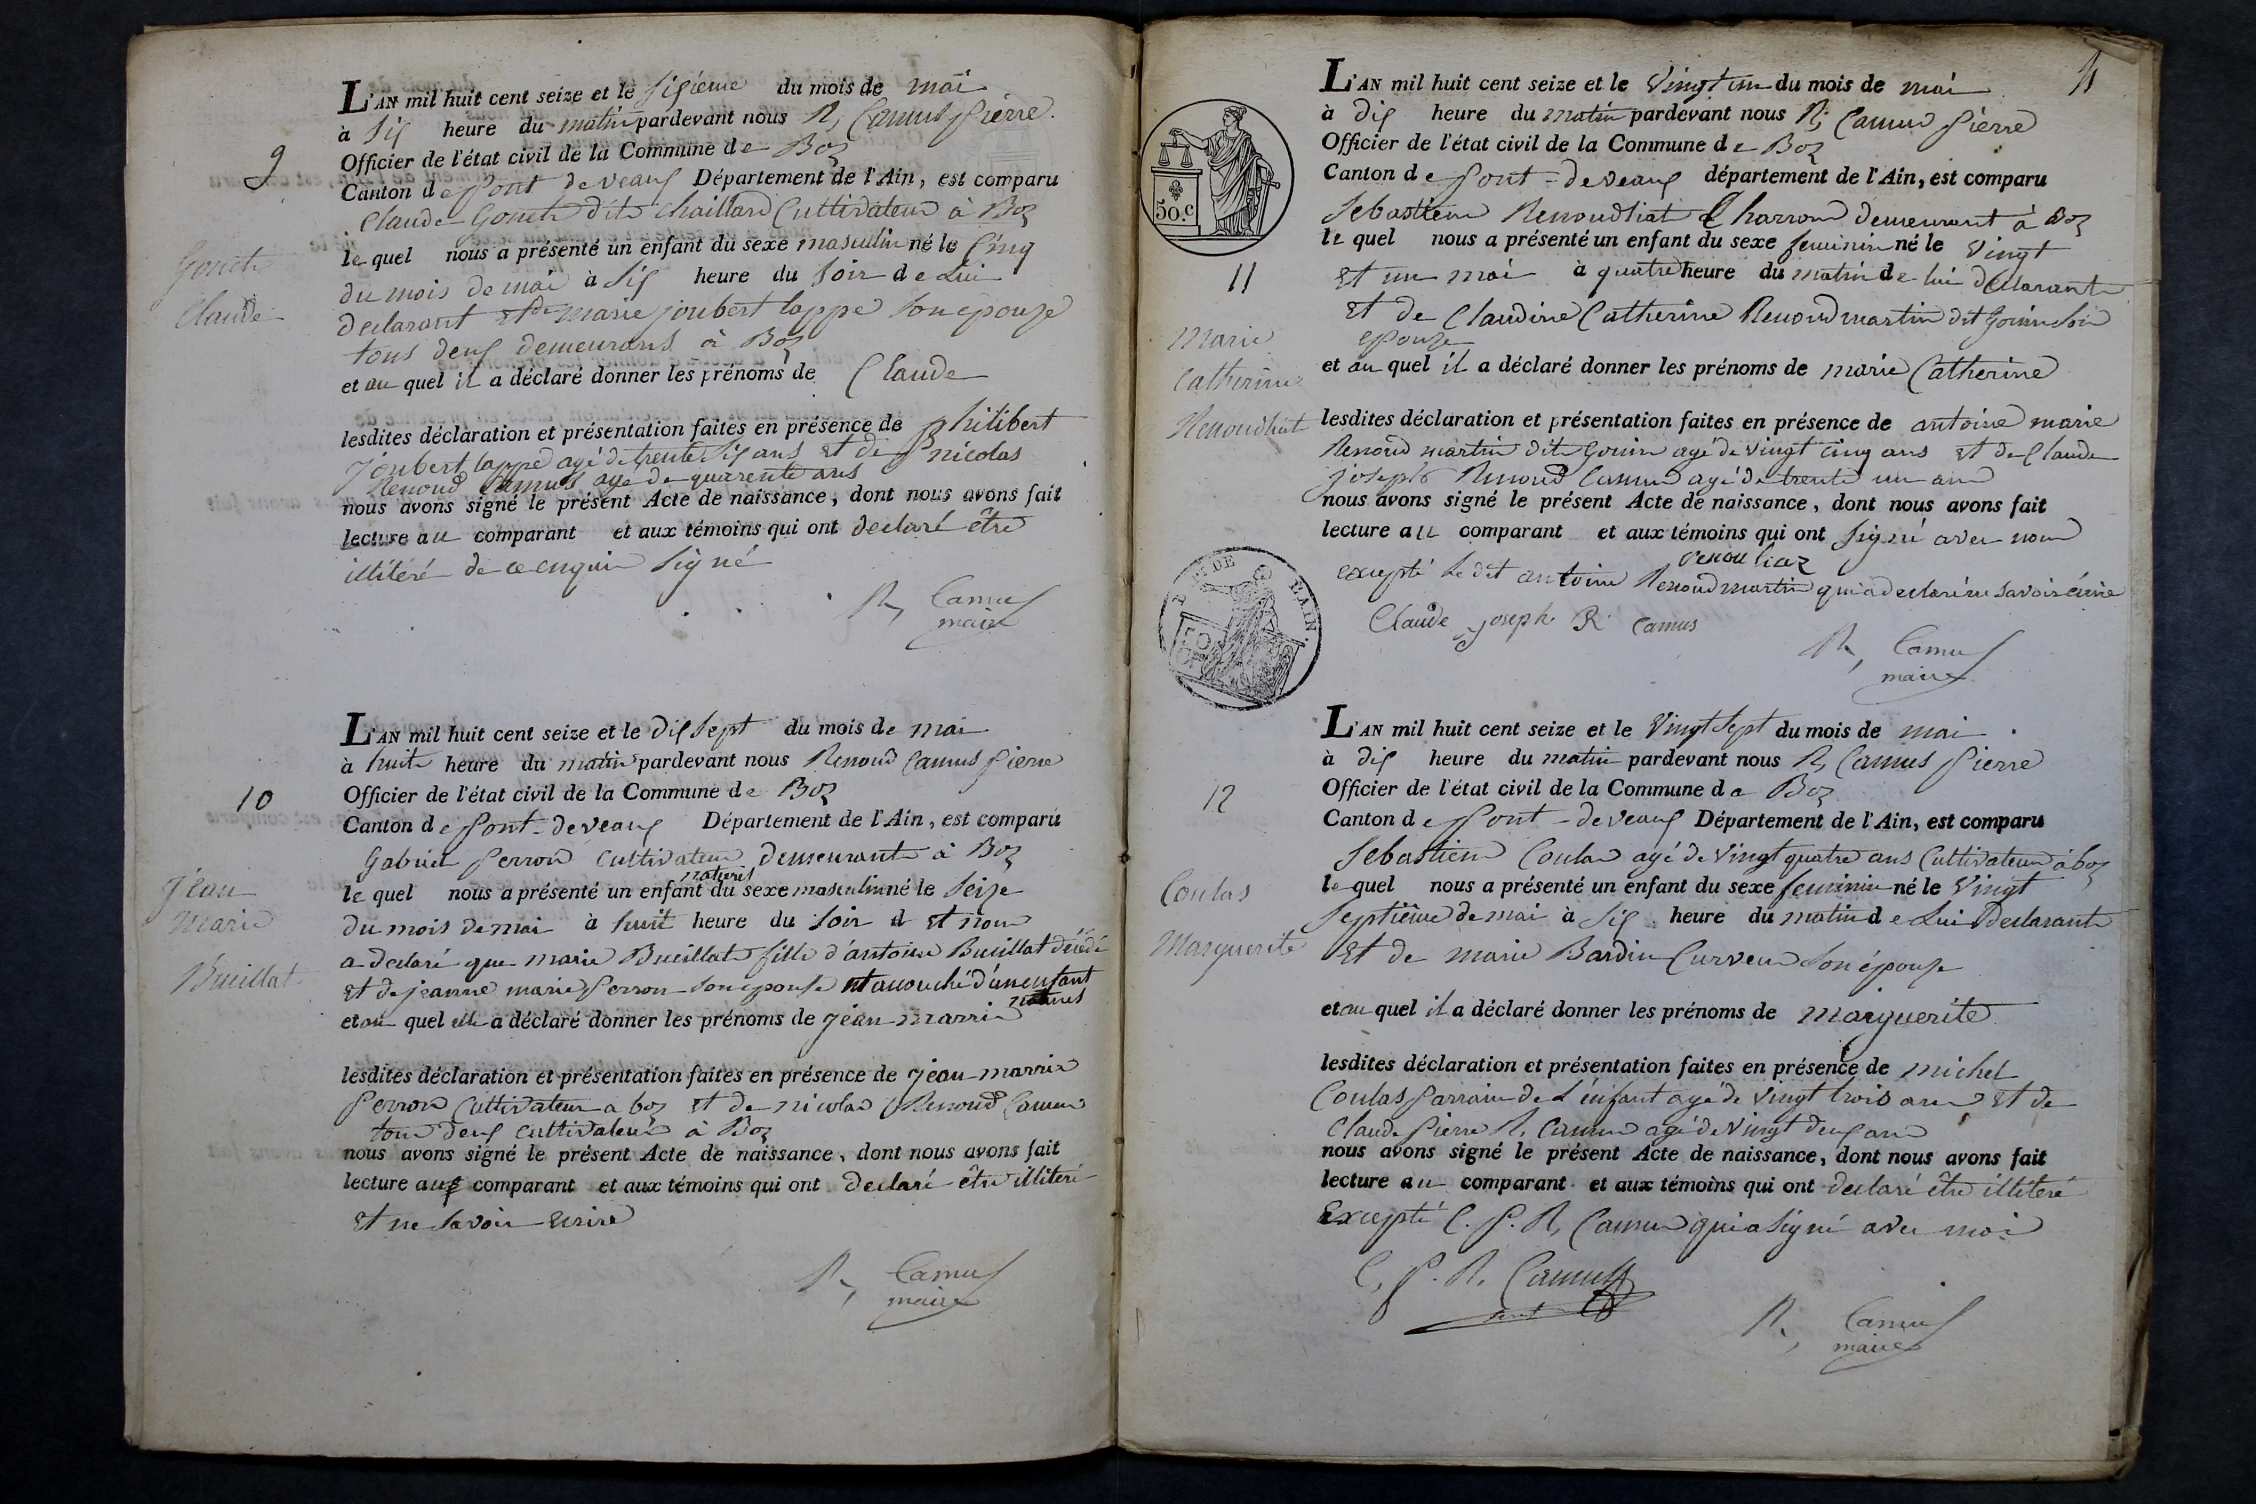 9
Goneth
Claude
L'AN mil huit cent seize et le sixième du mois de mai
à six heure du matin pardevant nous R, Camus pierre
Officier de l'état civil de la Commune de Boz
Canton de pont de veaux Département de l'Ain, est comparu
Claude Goneth dit chaillard Cultivateur à Boz
le quel nous a présenté un enfant du sexe masculin né le Cinq
du mois de mai à six heure du soir de Lui
declarant et de marie joubert lappe son epouze
tous deux demeurans à Boz
et au quel il a déclaré donner les prénoms de Claude
lesdites déclaration et présentation faites en présence de philibert
joubert lappe agé de trente six ans et de nicolas
Renoud Camus age de quarente ans
nous avons signé le présent Acte de naissance, dont nous avons fait
lecture au comparant et aux témoins qui ont declaré être
illitéré de ce enquis signé
R, Camus
maire
10
jean
marie
Bueillat
L'AN mil huit cent seize et le dix sept du mois de mai
à huit heure du matin pardevant nous Renoud Camus pierre
Officier de l'état civil de la Commune de Boz
Canton de pont-deveaux Département de l'Ain, est comparu
Gabriel perron cultivateur demeurant à Boz
naturel
le quel nous a présenté un enfant du sexe masculin né le seize
du mois de mai à huit heure du soir d et nous
a declaré que marie Bueillat fille d'antoine Bueillat décédé
et de jeanne marie perron son epouse et accouché d'un enfant
naturel
et au quel elle a déclaré donner les prénoms de jean marrie
lesdites déclaration et présentation faites en présence de jean marrie
perron Cultivateur a boz et de nicolas Renoud Camus
tous deux cultivateurs à Boz
nous avons signé le présent Acte de naissance, dont nous avons fait
lecture aux comparant et aux témoins qui ont declaré être illiteré
et ne savoir ecrire
R, Camus
maire
50.C
11
Marie
Catherine
Renoudliat
L'AN mil huit cent seize et le vingt un du mois de mai
à dix heure du matin pardevant nous R, Camus pierre
Officier de l'état civil de la Commune de Boz
Canton de pont-deveaux département de l'Ain, est comparu
Sebastien Renoudliat Charron demeurant à Boz
le quel nous a présenté un enfant du sexe feminin né le vingt
et un mai à quatre heure du matin de lui declarant
et de Claudine Catherine Renoud martin dit Gouin son
epouze
et au quel il a déclaré donner les prénoms de marie Catherine
lesdites déclaration et présentation faites en présence de antoine marie
Renoud martin dit Gouin agé de vingt cinq ans et de Claude
joseph Renoud Camus agé de trente un ans
nous avons signé le présent Acte de naissance, dont nous avons fait
lecture au comparant et aux témoins qui ont signé avec nous
excepté le dit antoine Renoud martin qui a declaré ne savoir écrire
renouliaz
Claude joseph R camus
R, Camus
maire
DE L'AIN.
50
12
Coulas
Marguerite
L'AN mil huit cent seize et le vingt sept du mois de mai
à dix heure du matin pardevant nous R, Camus pierre
Officier de l'état civil de la Commune de Boz
Canton de pont-deveaux Département de l'Ain, est comparu
Sebastien Coulas agé de vingt quatre ans Cultivateur à boz
le quel nous a présenté un enfant du sexe feminin né le vingt
septième de mai à six heure du matin de Lui declarant
et de marie Bardin Curveur son épouse
et au quel il a déclaré donner les prénoms de marguerite
lesdites déclaration et présentation faites en présence de michel
Coulas parrain de l'énfant agé de vingt trois ans et de
Claude pierre R, Camus agé de vingt deux ans
nous avons signé le présent Acte de naissance, dont nous avons fait
lecture au comparant et aux témoins qui ont declaré être illiteré
Excepté C. P. R, Camus qui a signé avec moi
C. P. R. Camus
R, Camus
maire